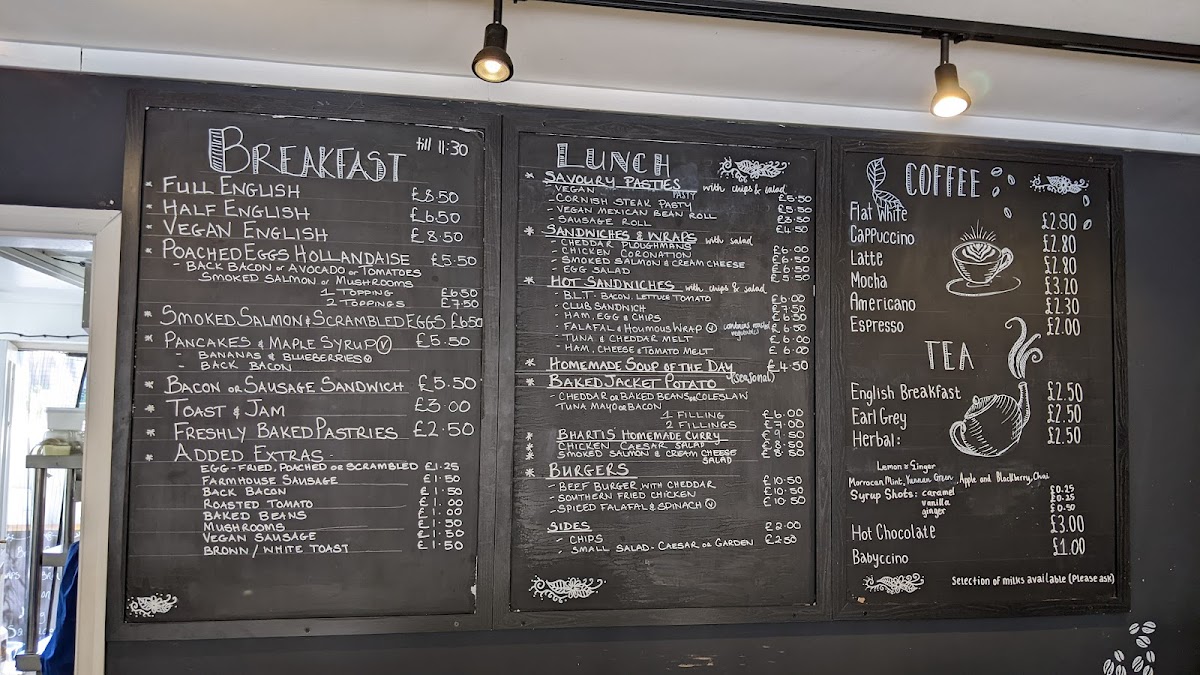 BREAKFAST till 11:30
* FULL ENGLISH £8.50
* HALF ENGLISH £6.50
* VEGAN ENGLISH £8.50
* POACHED EGGS HOLLANDAISE £5.50
- BACK BACON OR AVOCADO OR TOMATOES
SMOKED SALMON OR MUSHROOMS
1 TOPPING £6.50
2 TOPPINGS £7.50
* SMOKED SALMON & SCRAMBLED EGGS £6.50
* PANCAKES & MAPLE SYRUP (V) £5.50
- BANANAS & BLUEBERRIES (V)
- BACK BACON
* BACON OR SAUSAGE SANDWICH £5.50
* TOAST & JAM £3.00
* FRESHLY BAKED PASTRIES £2.50
* ADDED EXTRAS
EGG-FRIED, POACHED OR SCRAMBLED £1.25
FARMHOUSE SAUSAGE £1.50
BACK BACON £1.50
ROASTED TOMATO £1.00
BAKED BEANS £1.00
MUSHROOMS £1.50
VEGAN SAUSAGE £1.50
BROWN/WHITE TOAST £1.50
LUNCH
* SAVOURY PASTIES with chips & salad
- VEGAN PASTY £5.50
- CORNISH STEAK PASTY £5.50
- VEGAN MEXICAN BEAN ROLL £3.50
- SAUSAGE ROLL £4.50
* SANDWICHES & WRAPS with salad
- CHEDDAR PLOUGHMANS £6.00
- CHICKEN CORONATION
- SMOKED SALMON & CREAM CHEESE
- EGG SALAD £5.50
* HOT SANDWICHES with chips & salad
- B.L.T - BACON, LETTUCE TOMATO £6.00
- CLUB SANDWICH £7.50
- HAM, EGG & CHIPS £6.50
- FALAFAL & HOUMOUS WRAP (V) £6.50
- TUNA & CHEDDAR MELT £6.00
- HAM, CHEESE & TOMATO MELT £6.00
* HOMEMADE SOUP OF THE DAY (seasonal) £4.50
* BAKED JACKET POTATO
- CHEDDAR OR BAKED BEANS OR COLESLAW
TUNA MAYO OR BACON
1 FILLING £6.00
2 FILLINGS £7.00
* BHARTIS' HOMEMADE CURRY £9.50
* CHICKEN CAESAR SALAD £8.50
* SMOKED SALMON & CREAM CHEESE SALAD £8.50
* BURGERS
- BEEF BURGER WITH CHEDDAR £10.50
- SOUTHERN FRIED CHICKEN £10.50
- SPICED FALAFAL & SPINACH (V) £10.50
SIDES
- CHIPS £2.00
- SMALL SALAD - CAESAR OR GARDEN £2.50
COFFEE
Flat White £2.80
Cappuccino £2.80
Latte £2.80
Mocha £3.20
Americano £2.30
Espresso £2.00
TEA
English Breakfast £2.50
Earl Grey £2.50
Herbal: £2.50
Lemon & Ginger
Morrocan Mint, Yunnan Green, Apple and Blackberry, Chai
Syrup Shots: caramel £0.25
vanilla £0.25
ginger £0.50
Hot Chocolate £3.00
Babyccino £1.00
Selection of milks available (Please ask)